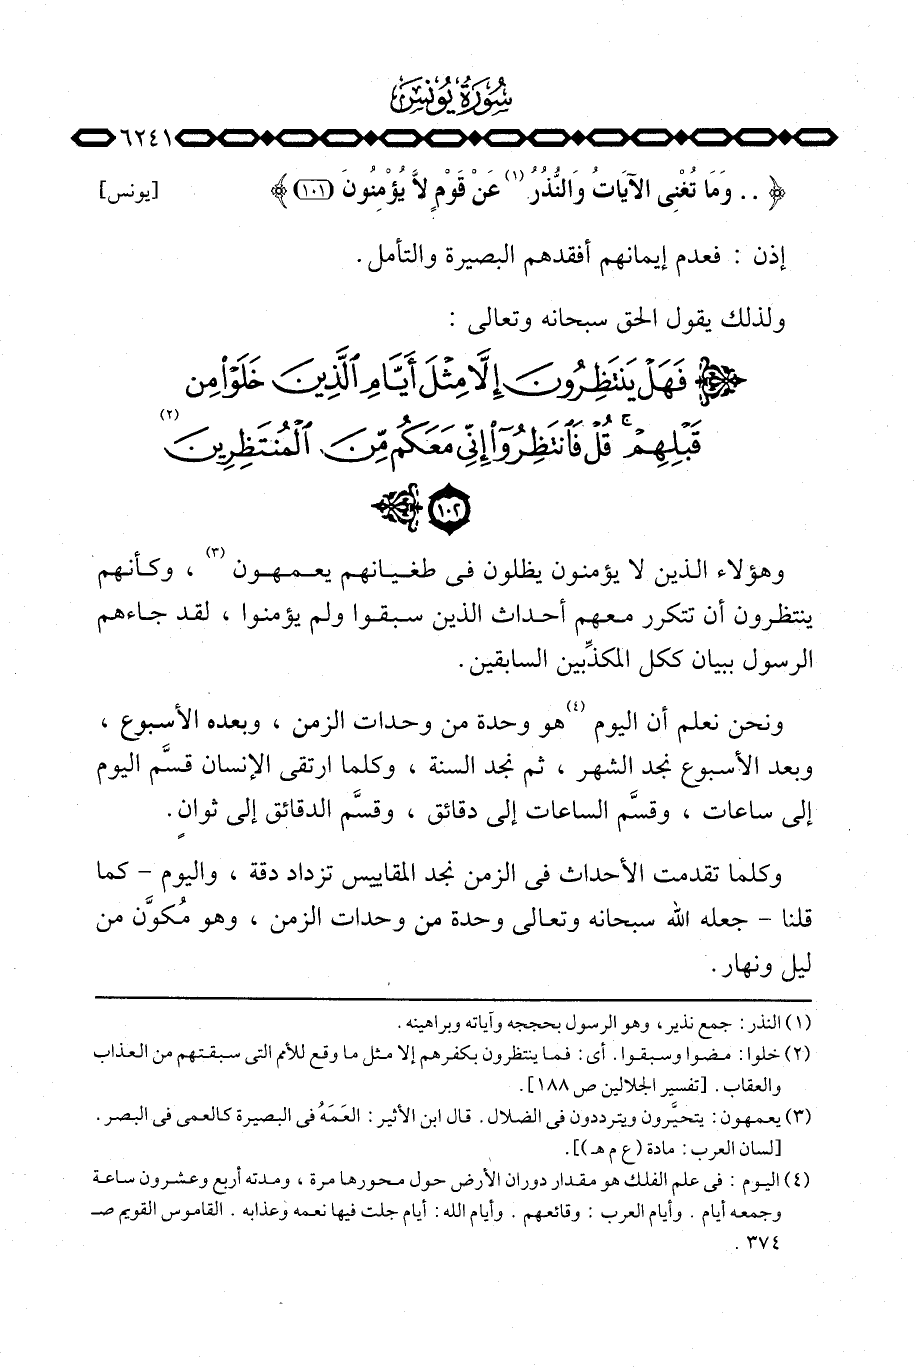 سُورَةُ يُونُسَ
٦٢٤١
﴿ .. وَمَا تُغْنِى الآيَاتُ وَالنُّذُرُ (١) عَنْ قَوْمٍ لاَّ يُؤْمِنُونَ (١٠١) ﴾ [يونس]
إذن : فعدم إيمانهم أفقدهم البصيرة والتأمل .
ولذلك يقول الحق سبحانه وتعالى :
﴿ فَهَلْ يَنتَظِرُونَ إِلَّا مِثْلَ أَيَّامِ ٱلَّذِينَ خَلَوْا۟ مِن
قَبْلِهِمْ ۚ قُلْ فَٱنتَظِرُوٓا۟ إِنِّى مَعَكُم مِّنَ ٱلْمُنتَظِرِينَ (٢)
١٠٢ ﴾
وهؤلاء الذين لا يؤمنون يظلون فى طغـيـانهم يعـمـهـون (٣) ، وكـأنـهم
ينتظرون أن تتكرر معهم أحداث الذين سبقوا ولم يؤمنوا ، لقد جاءهم
الرسول ببيان ككل المكذِّبين السابقين .
ونحن نعلم أن اليوم (٤) هو وحدة من وحدات الزمن ، وبعده الأسبوع ،
وبعد الأسبوع نجد الشهر ، ثم نجد السنة ، وكلما ارتقى الإنسان قسَّم اليوم
إلى ساعات ، وقسَّم الساعات إلى دقائق ، وقسَّم الدقائق إلى ثوانٍ .
وكلما تقدمت الأحداث فى الزمن نجد المقاييس تزداد دقة ، واليوم - كما
قلنا - جعله الله سبحانه وتعالى وحدة من وحدات الزمن ، وهو مُكوَّن من
ليل ونهار .
(١) النذر : جمع نذير ، وهو الرسول بحججه وآياته وبراهينه .
(٢) خلوا : مضوا وسبقوا . أى : فما ينتظرون بكفرهم إلا مثل ما وقع للأمم التى سبقتهم من العذاب
والعقاب . [تفسير الجلالين ص ١٨٨] .
(٣) يعمهون : يتحيَّرون ويترددون فى الضلال . قال ابن الأثير : العَمَهُ فى البصيرة كالعمى فى البصر .
[لسان العرب : مادة (ع م هـ)] .
(٤) اليوم : فى علم الفلك هو مقدار دوران الأرض حول محورها مرة ، ومدته أربع وعشرون ساعة
وجمعه أيام . وأيام العرب : وقائعهم . وأيام الله : أيام جلت فيها نعمه وعذابه . القاموس القويم صـ
٣٧٤ .